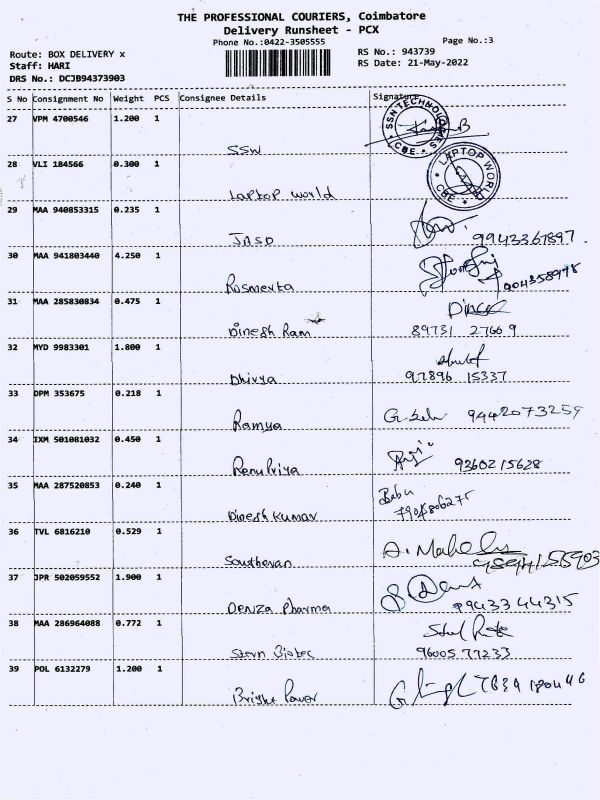 THE PROFESSIONAL COURIERS, Coimbatore
Delivery Runsheet - PCX
Phone No.:0422-3505555
Page No.:3
Route: BOX DELIVERY x
RS No.: 943739
Staff: HARI
RS Date: 21-May-2022
DRS No.: DCJB94373903
S No Consignment No Weight PCS Consignee Details Signature
27 VPM 4700546 1.200 1
SSW
SSN TECHNOLOGIES CBE
28 VLI 184566 0.300 1
Laptop world
LAPTOP WORLD CBE
29 MAA 940853315 0.235 1
JASD 9943361897
30 MAA 941803440 4.250 1
Rosmerta
31 MAA 285830834 0.475 1
Dinesh Ram 89731 27669
32 MYD 9983301 1.800 1
Dhivya 97896 15337
33 DPM 353675 0.218 1
Ramya 9442073259
34 IXM 501081032 0.450 1
Renupriya 9360215628
35 MAA 287520853 0.240 1
Babu
Dinesh Kumar
36 TVL 6816210 0.529 1
Southern
37 JPR 502059552 1.900 1
Deniza Pharma 9943344315
38 MAA 286964088 0.772 1
Stern Biotec 96005 77233
39 POL 6132279 1.200 1
Bright Power